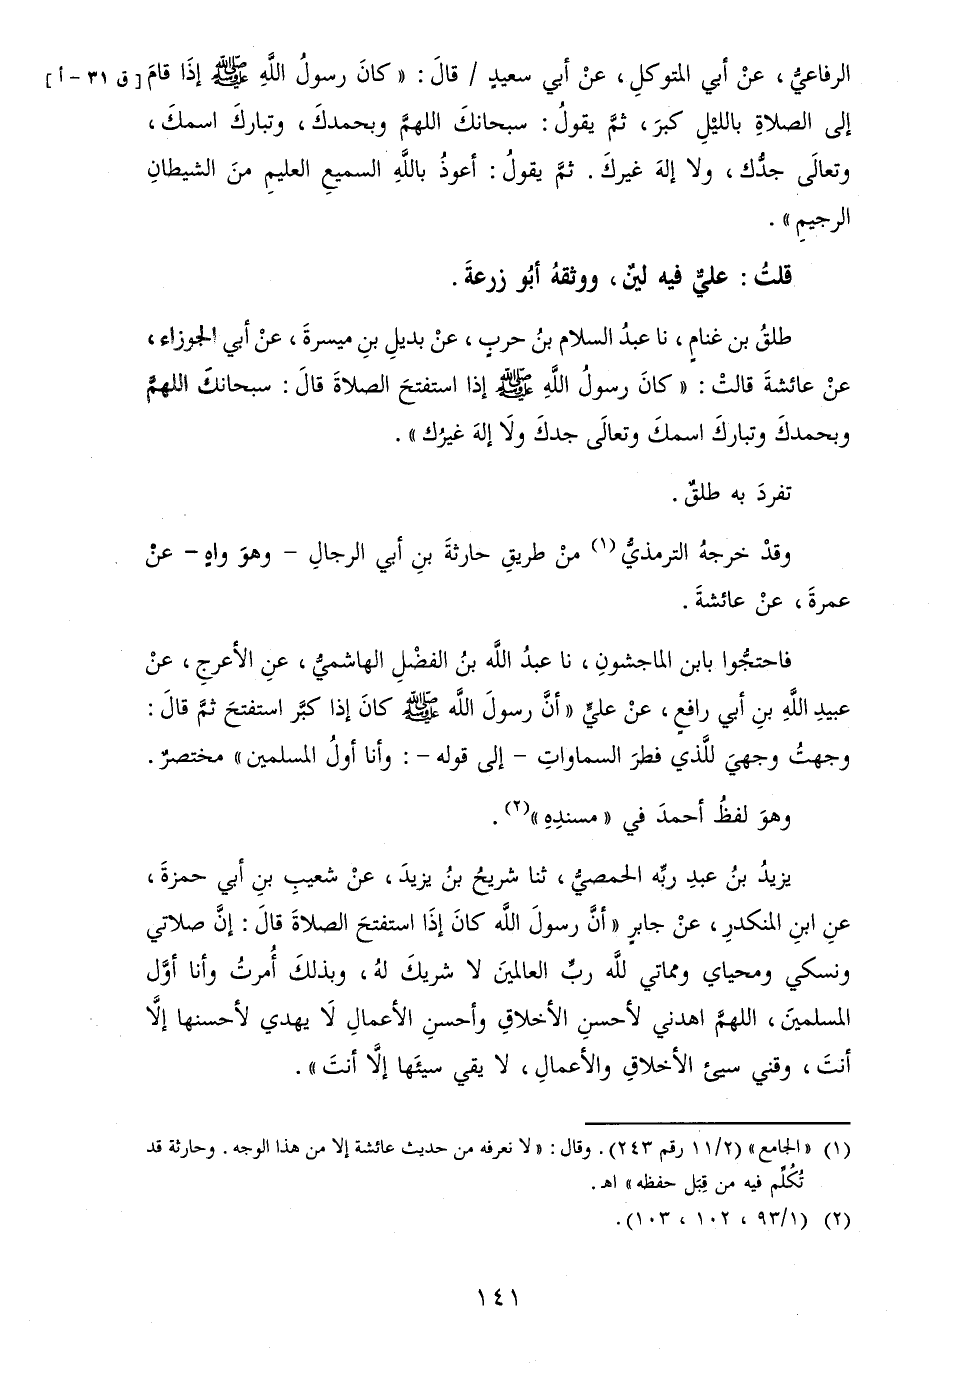 الرفاعيُّ ، عنْ أبي المتوكلِ ، عنْ أبي سعيدٍ / قالَ : « كانَ رسولُ اللَّهِ ﷺ إذَا قامَ [ ق ٣١ - أ ]
إلى الصلاةِ بالليْلِ كبرَ ، ثمَّ يقولُ : سبحانكَ اللهمَّ وبحمدكَ ، وتباركَ اسمكَ ،
وتعالَى جدُّك ، ولا إلهَ غيركَ . ثمَّ يقولُ : أعوذُ باللَّهِ السميعِ العليمِ منَ الشيطانِ
الرجيمِ » .
قلتُ : عليٌّ فيه لينٌ ، ووثقهُ أبُو زرعةَ .
طلقُ بن غنامٍ ، نا عبدُ السلام بنُ حربٍ ، عنْ بديلِ بنِ ميسرةَ ، عنْ أبي الجوزاء ،
عنْ عائشةَ قالتْ : « كانَ رسولُ اللَّهِ ﷺ إذا استفتحَ الصلاةَ قالَ : سبحانكَ اللهمَّ
وبحمدكَ وتباركَ اسمكَ وتعالَى جدكَ ولَا إلهَ غيرُك » .
تفردَ به طلقٌ .
وقدْ خرجهُ الترمذيُّ (١) منْ طريقِ حارثةَ بنِ أبي الرجالِ - وهوَ واهٍ - عنْ
عمرةَ ، عنْ عائشةَ .
فاحتجُّوا بابن الماجشونِ ، نا عبدُ الله بنُ الفضْلِ الهاشميُّ ، عنِ الأعرجِ ، عنْ
عبيدِ اللَّهِ بنِ أبي رافعٍ ، عنْ عليٍّ « أنَّ رسولَ اللَّه ﷺ كانَ إذا كبَّر استفتحَ ثمَّ قالَ :
وجهتُ وجهيَ للَّذي فطرَ السماواتِ - إلى قوله - : وأنا أولُ المسلمين » مختصرٌ .
وهوَ لفظُ أحمدَ في « مسندِهِ »(٢) .
يزيدُ بنُ عبدِ ربِّه الحمصيُّ ، ثنا شريحُ بنُ يزيدَ ، عنْ شعيبِ بنِ أبي حمزةَ ،
عنِ ابنِ المنكدرِ ، عنْ جابرٍ « أنَّ رسولَ اللَّه كانَ إذَا استفتحَ الصلاةَ قالَ : إنَّ صلاتي
ونسكي ومحياي ومماتي للَّه ربِّ العالمينَ لا شريكَ لهُ ، وبذلكَ أُمرتُ وأنا أوَّل
المسلمينَ ، اللهمَّ اهدني لأحسنِ الأخلاقِ وأحسنِ الأعمالِ لَا يهدي لأحسنها إلَّا
أنتَ ، وقني سيئَ الأخلاقِ والأعمالِ ، لا يقي سيئَها إلَّا أنتَ » .
(١) « الجامع » (١١/٢ رقم ٢٤٣) . وقال : « لا نعرفه من حديث عائشة إلا من هذا الوجه . وحارثة قد
تُكُلِّم فيه من قِبَل حفظه » اهـ .
(٢) (٩٣/١ ، ١٠٢ ، ١٠٣) .
١٤١